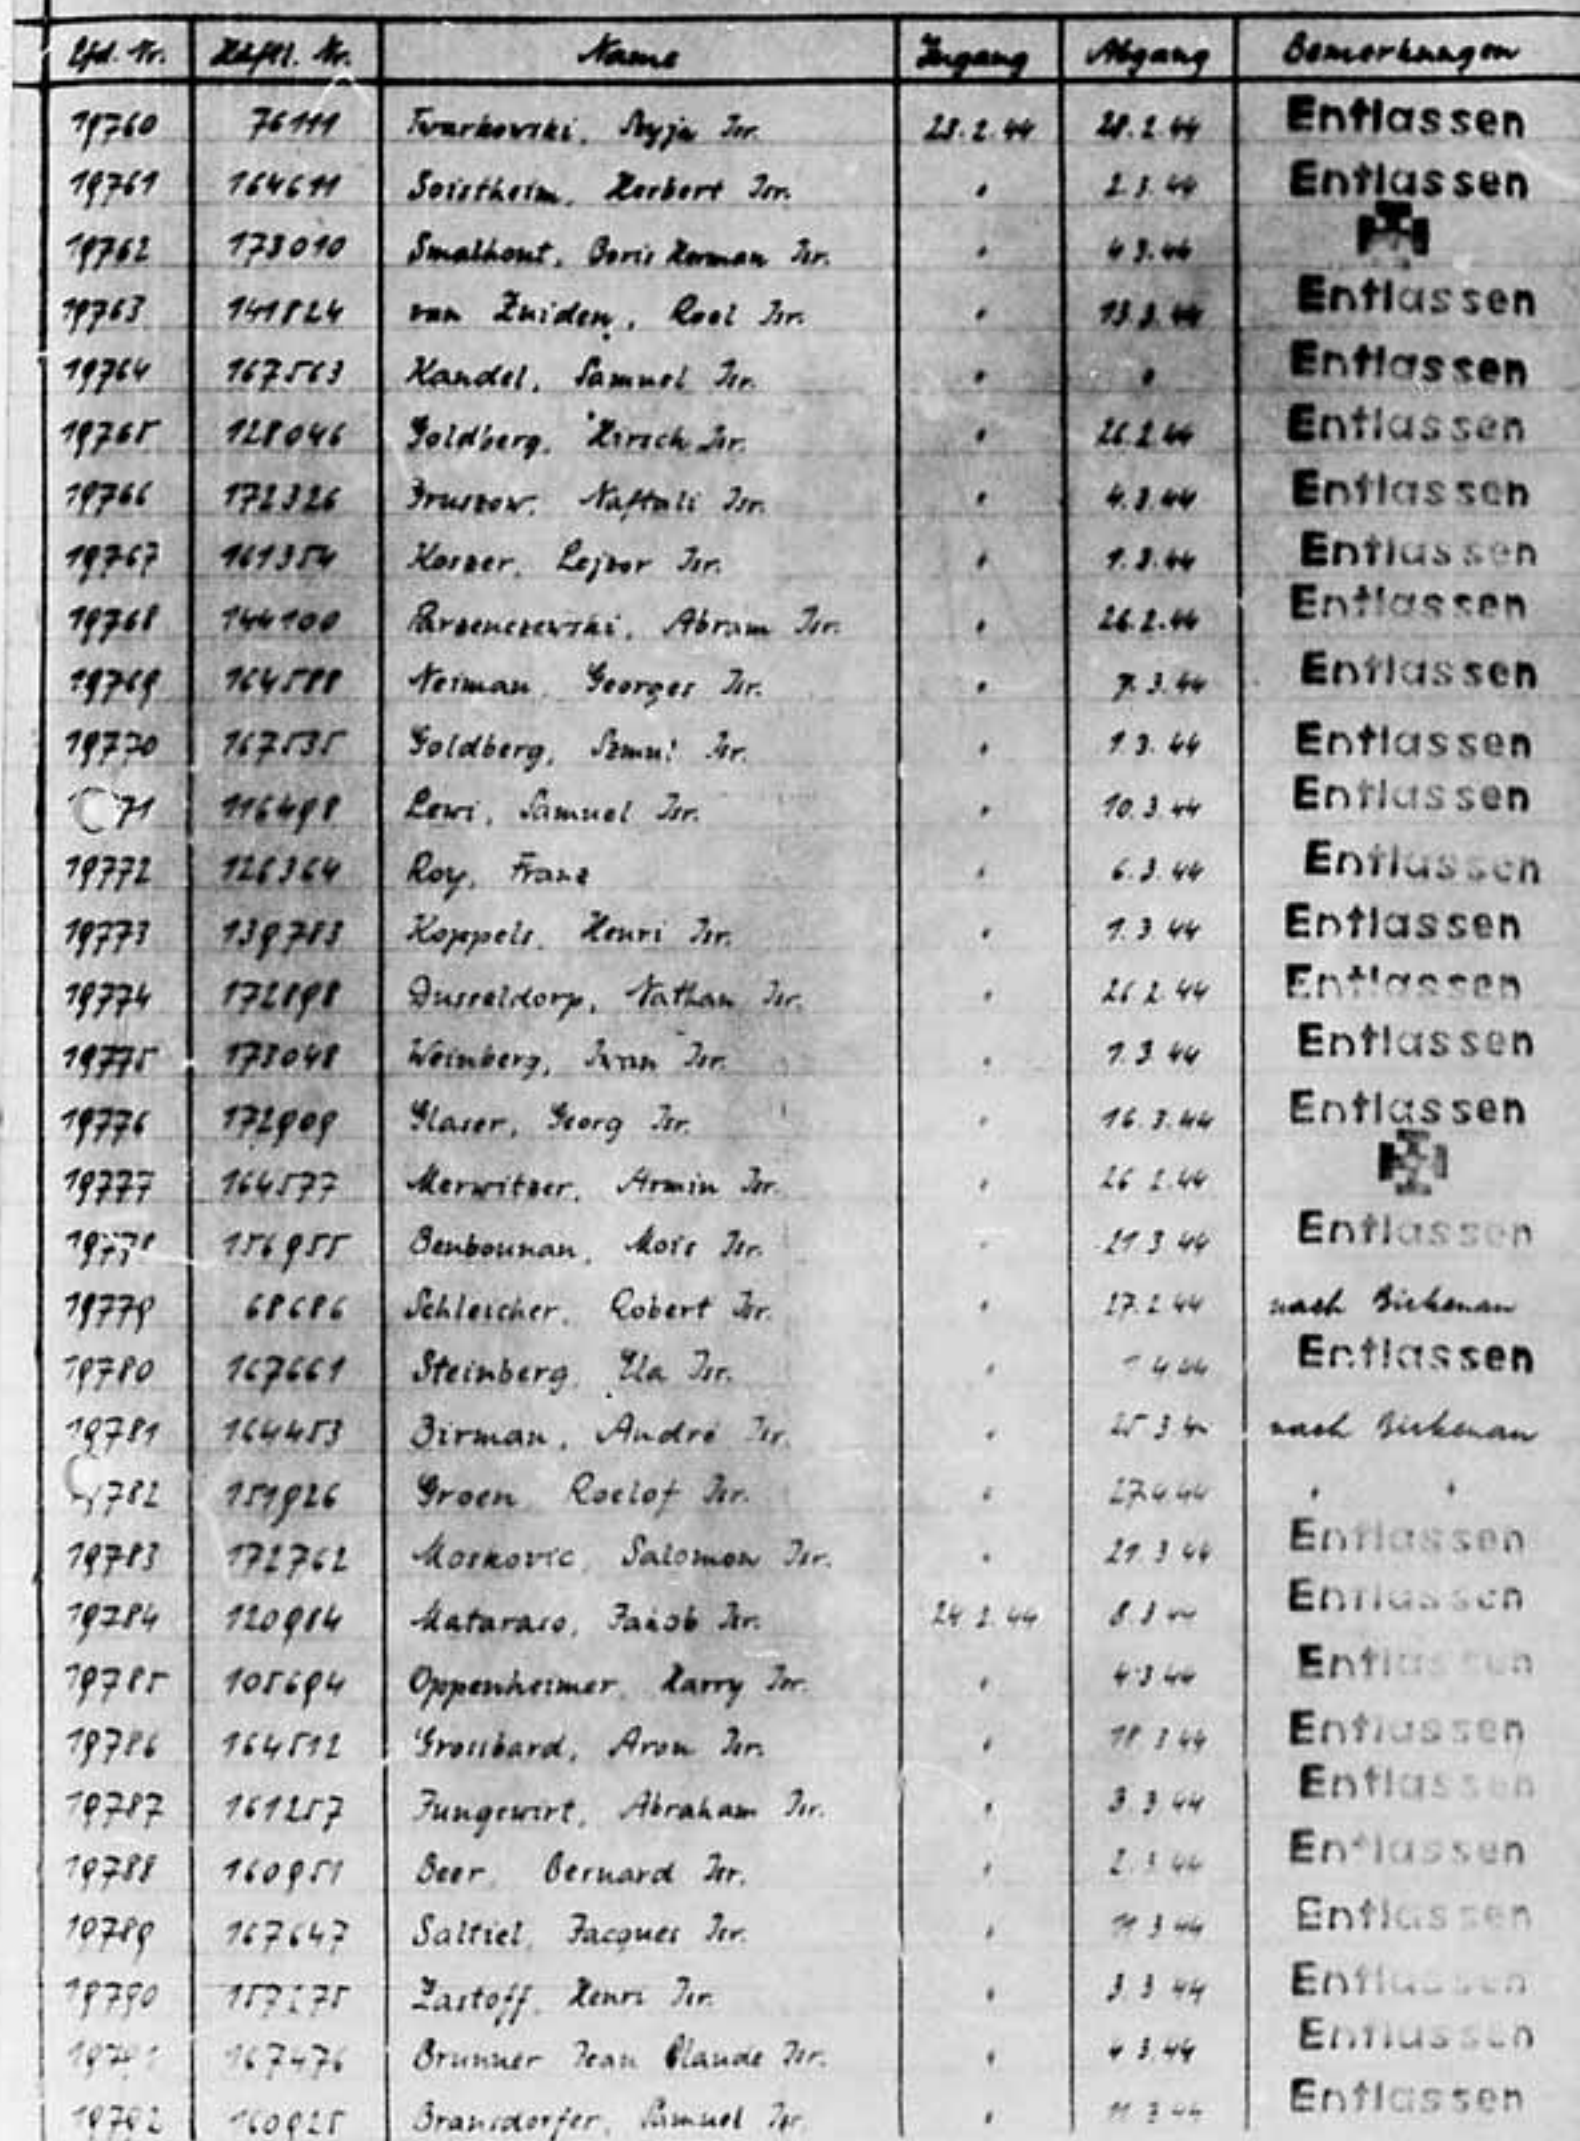 Lfd. Nr. Häftl. Nr. Name Zugang Abgang Bemerkungen
19760 76111 Twarkowski, Isr. 23.2.44 28.2.44 Entlassen
19761 164611 Soistheim, Herbert Isr. " 2.3.44 Entlassen
19762 173010 Smalhout, Boris Herman Isr. " 4.3.44
19763 141824 van Zuiden, Roel Isr. " 13.3.44 Entlassen
19764 167563 Handel, Samuel Isr. " " Entlassen
19765 128046 Goldberg, Hirsch Isr. " 26.2.44 Entlassen
19766 172326 Naftali Isr. " 4.3.44 Entlassen
19767 161354 Kosner, Lejzor Isr. " 1.3.44 Entlassen
19768 144100 Parzenczewski, Abram Isr. " 26.2.44 Entlassen
19769 164588 Neiman, Georges Isr. " 7.3.44 Entlassen
19770 167535 Goldberg, Szmul Isr. " 1.3.44 Entlassen
71 116498 Lewi, Samuel Isr. " 10.3.44 Entlassen
19772 126364 Roy, Franz " 6.3.44 Entlassen
19773 139783 Koppels, Henri Isr. " 1.3.44 Entlassen
19774 172898 Dusseldorp, Nathan Isr. " 26.2.44 Entlassen
19775 173048 Weinberg, Iwan Isr. " 1.3.44 Entlassen
19776 172909 Glaser, Georg Isr. " 16.3.44 Entlassen
19777 164577 Merwitzer, Armin Isr. " 26.2.44
19778 156955 Benbounan, Mois Isr. " 21.3.44 Entlassen
19779 68686 Schleicher, Robert Isr. " 27.2.44 nach Birkenau
19780 167661 Steinberg, Ela Isr. " 1.4.44 Entlassen
19781 164453 Birman, André Isr. " 25.3.44 nach Birkenau
19782 151926 Groen, Roelof Isr. " 27.4.44 " "
19783 172762 Moskovic, Salomon Isr. " 21.3.44 Entlassen
19784 120984 Mataraso, Jakob Isr. 24.2.44 8.3.44 Entlassen
19785 105694 Oppenheimer, Harry Isr. " 4.3.44 Entlassen
19786 164512 Grossbard, Aron Isr. " 18.3.44 Entlassen
19787 161257 Jungewirt, Abraham Isr. " 3.3.44 Entlassen
19788 160951 Beer, Bernard Isr. " 2.3.44 Entlassen
19789 167647 Saltiel, Jacques Isr. " 11.3.44 Entlassen
19790 157275 Zastoff, Henri Isr. " 3.3.44 Entlassen
19791 167476 Brunner Jean Claude Isr. " 4.3.44 Entlassen
19792 160925 Bransdorfer, Samuel Isr. " 11.3.44 Entlassen